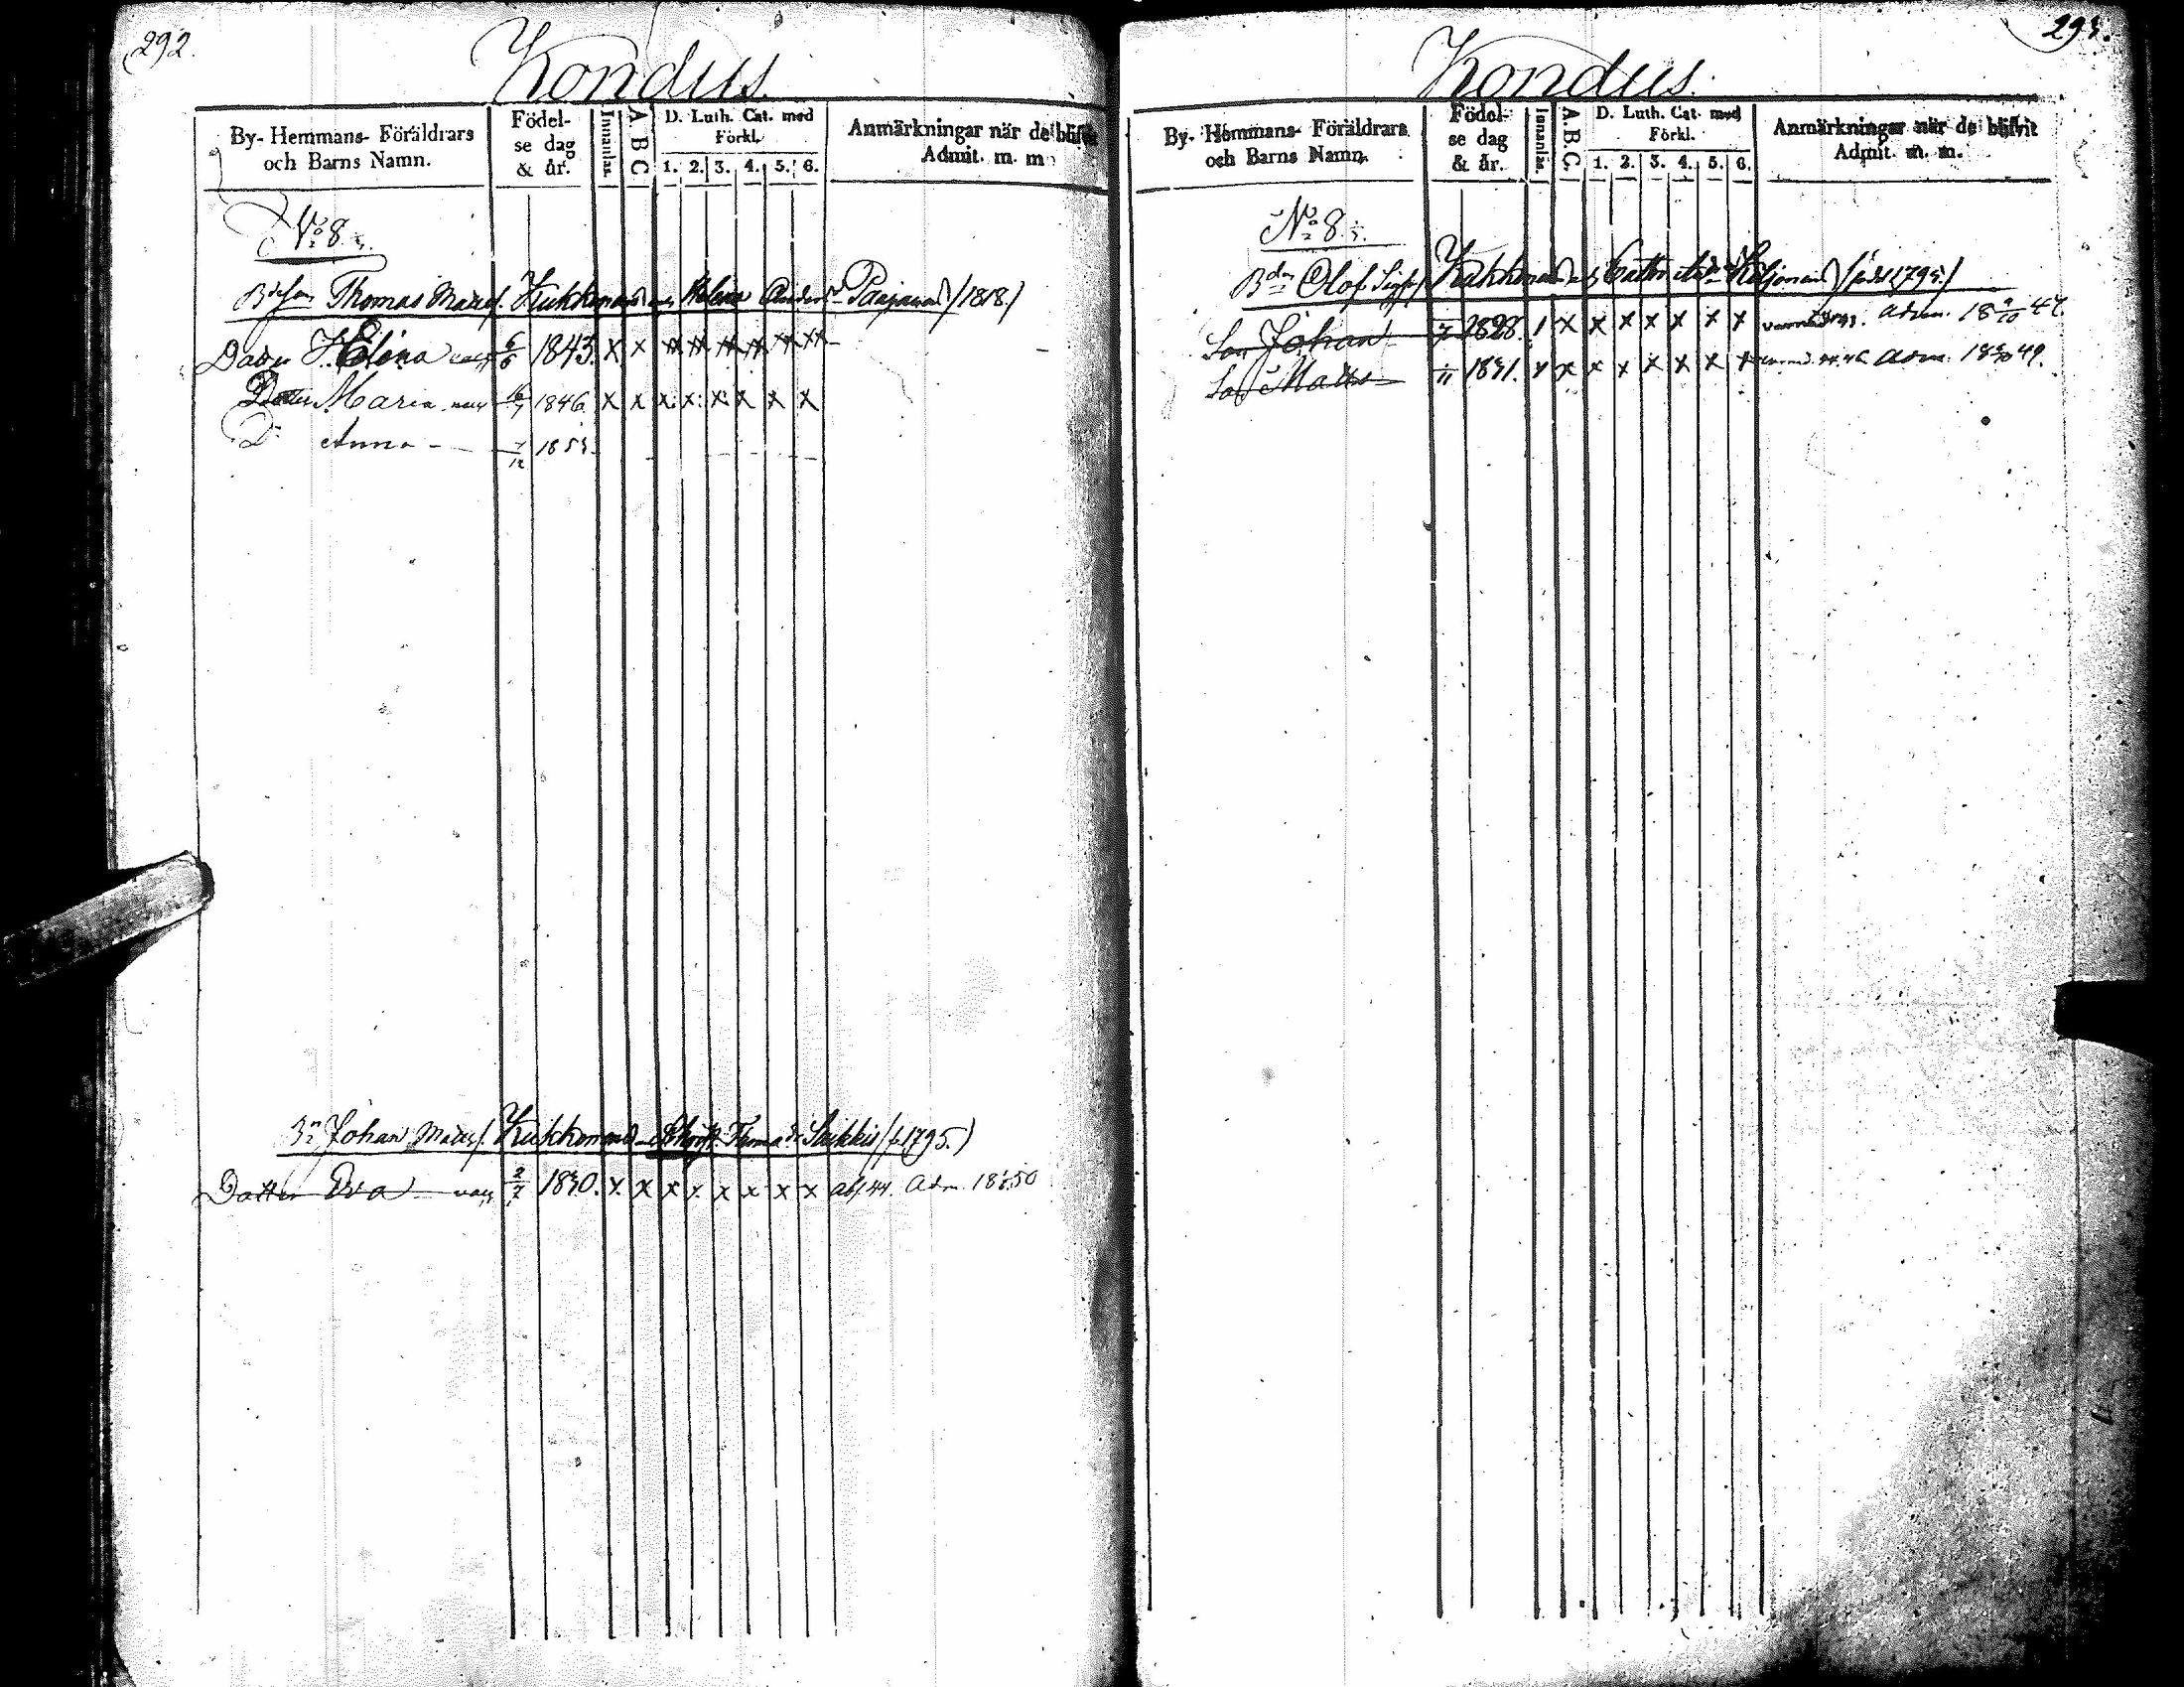 292.
Kondus.
By- Hemmans- Föräldrars och Barns Namn.
Födelse dag & år.
Innanläs.
A B C
D. Luth. Cat. med Förkl.
1. 2. 3. 4. 5. 6.
Anmärkningar när de blifvit Admit. m. m.
No 8.
Thomas Matts. Kukkonen Helena Anders Paajanen /1818/
Dotter H. Elena 6/5 1843. x x xx xx xx xx xx xx
Dotter Maria 16/7 1846. x x x x x x x x
D: Anna 7/12 1853.
Johan Matts. Kukkonen Thomad:r Sikkis /f. 1795./
Dotter Eva 2/7 1830. x x x x x x x x Adm. 50
293.
Kondus.
By- Hemmans- Föräldrars och Barns Namn.
Födelse dag & år.
Innanläs.
A.B.C.
D. Luth. Cat. med Förkl.
1. 2. 3. 4. 5. 6.
Anmärkningar när de blifvit Admit. m. m.
No 8.
Olof Sigfr. Kukkonen Cath. Kiljonen /född 1795./
Son Johan 1828. x x x x x x x Adm. 18 47.
Son Matts 1831. x x x x x x x x Adm. 18 49.